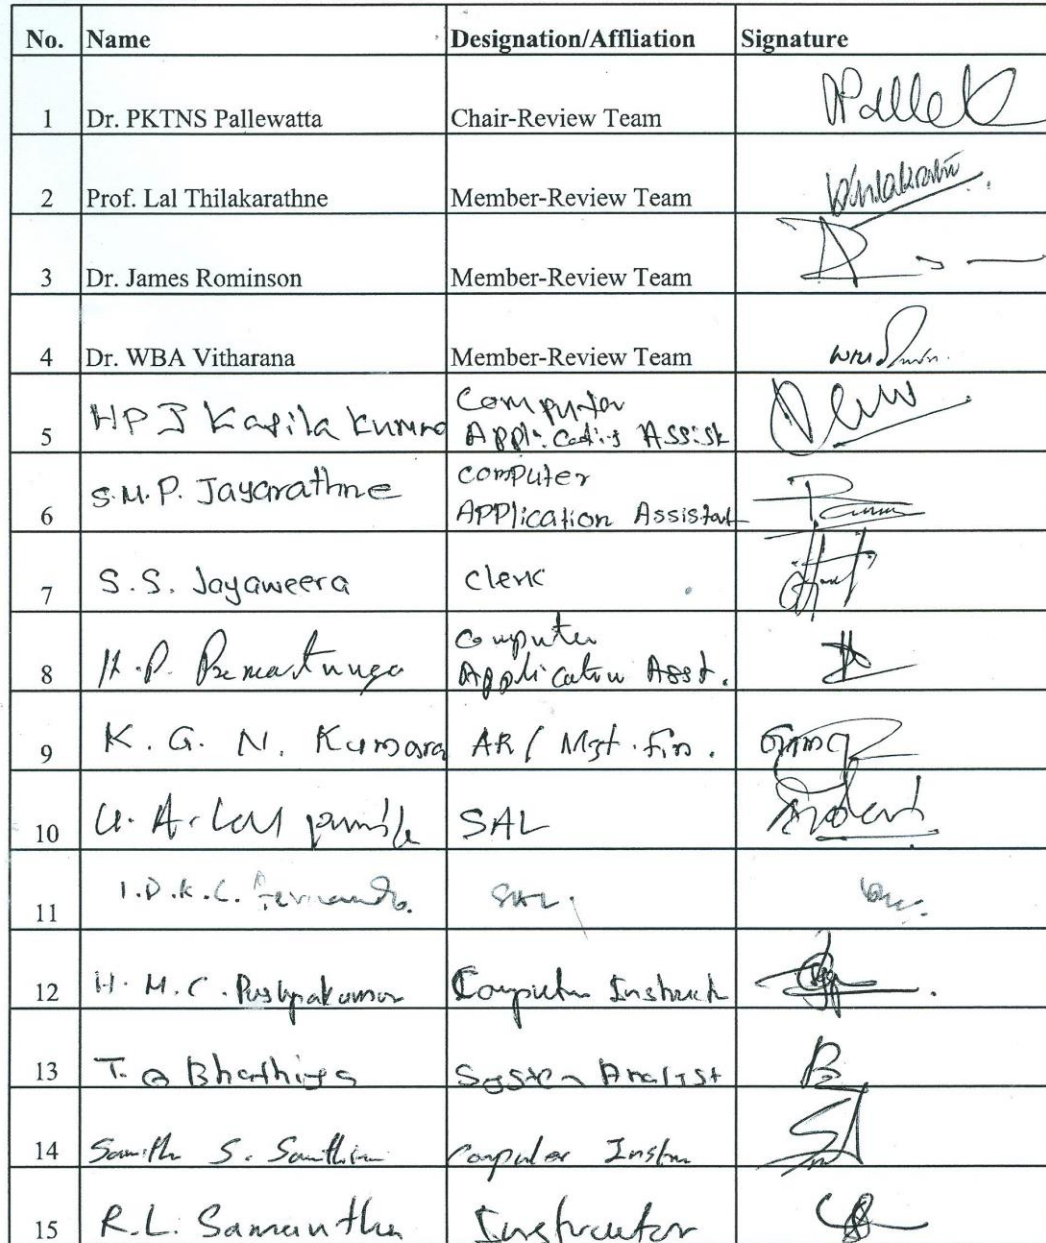 No. Name Designation/Affliation Signature
1 Dr. PKTNS Pallewatta Chair-Review Team
2 Prof. Lal Thilakarathne Member-Review Team
3 Dr. James Rominson Member-Review Team
4 Dr. WBA Vitharana Member-Review Team
Computer
5 HP J Kapila Kumara Application Assist
Computer
6 S.M.P. Jayarathne Application Assistant
7 S.S. Jayaweera Clerk
Computer
8 H.P. Premartunga Application Asst.
9 K. G. N. Kumara AR / Mgt. Fin.
10 U. A. Lal SAL
11 I.D.K.C. Fernando. SAL.
12 H. M. C. Pushpakumar Computer Instruct
13 T. Bhathiya System Analyst
14 Samith S. Computer Instru
15 R.L. Samantha Instructor